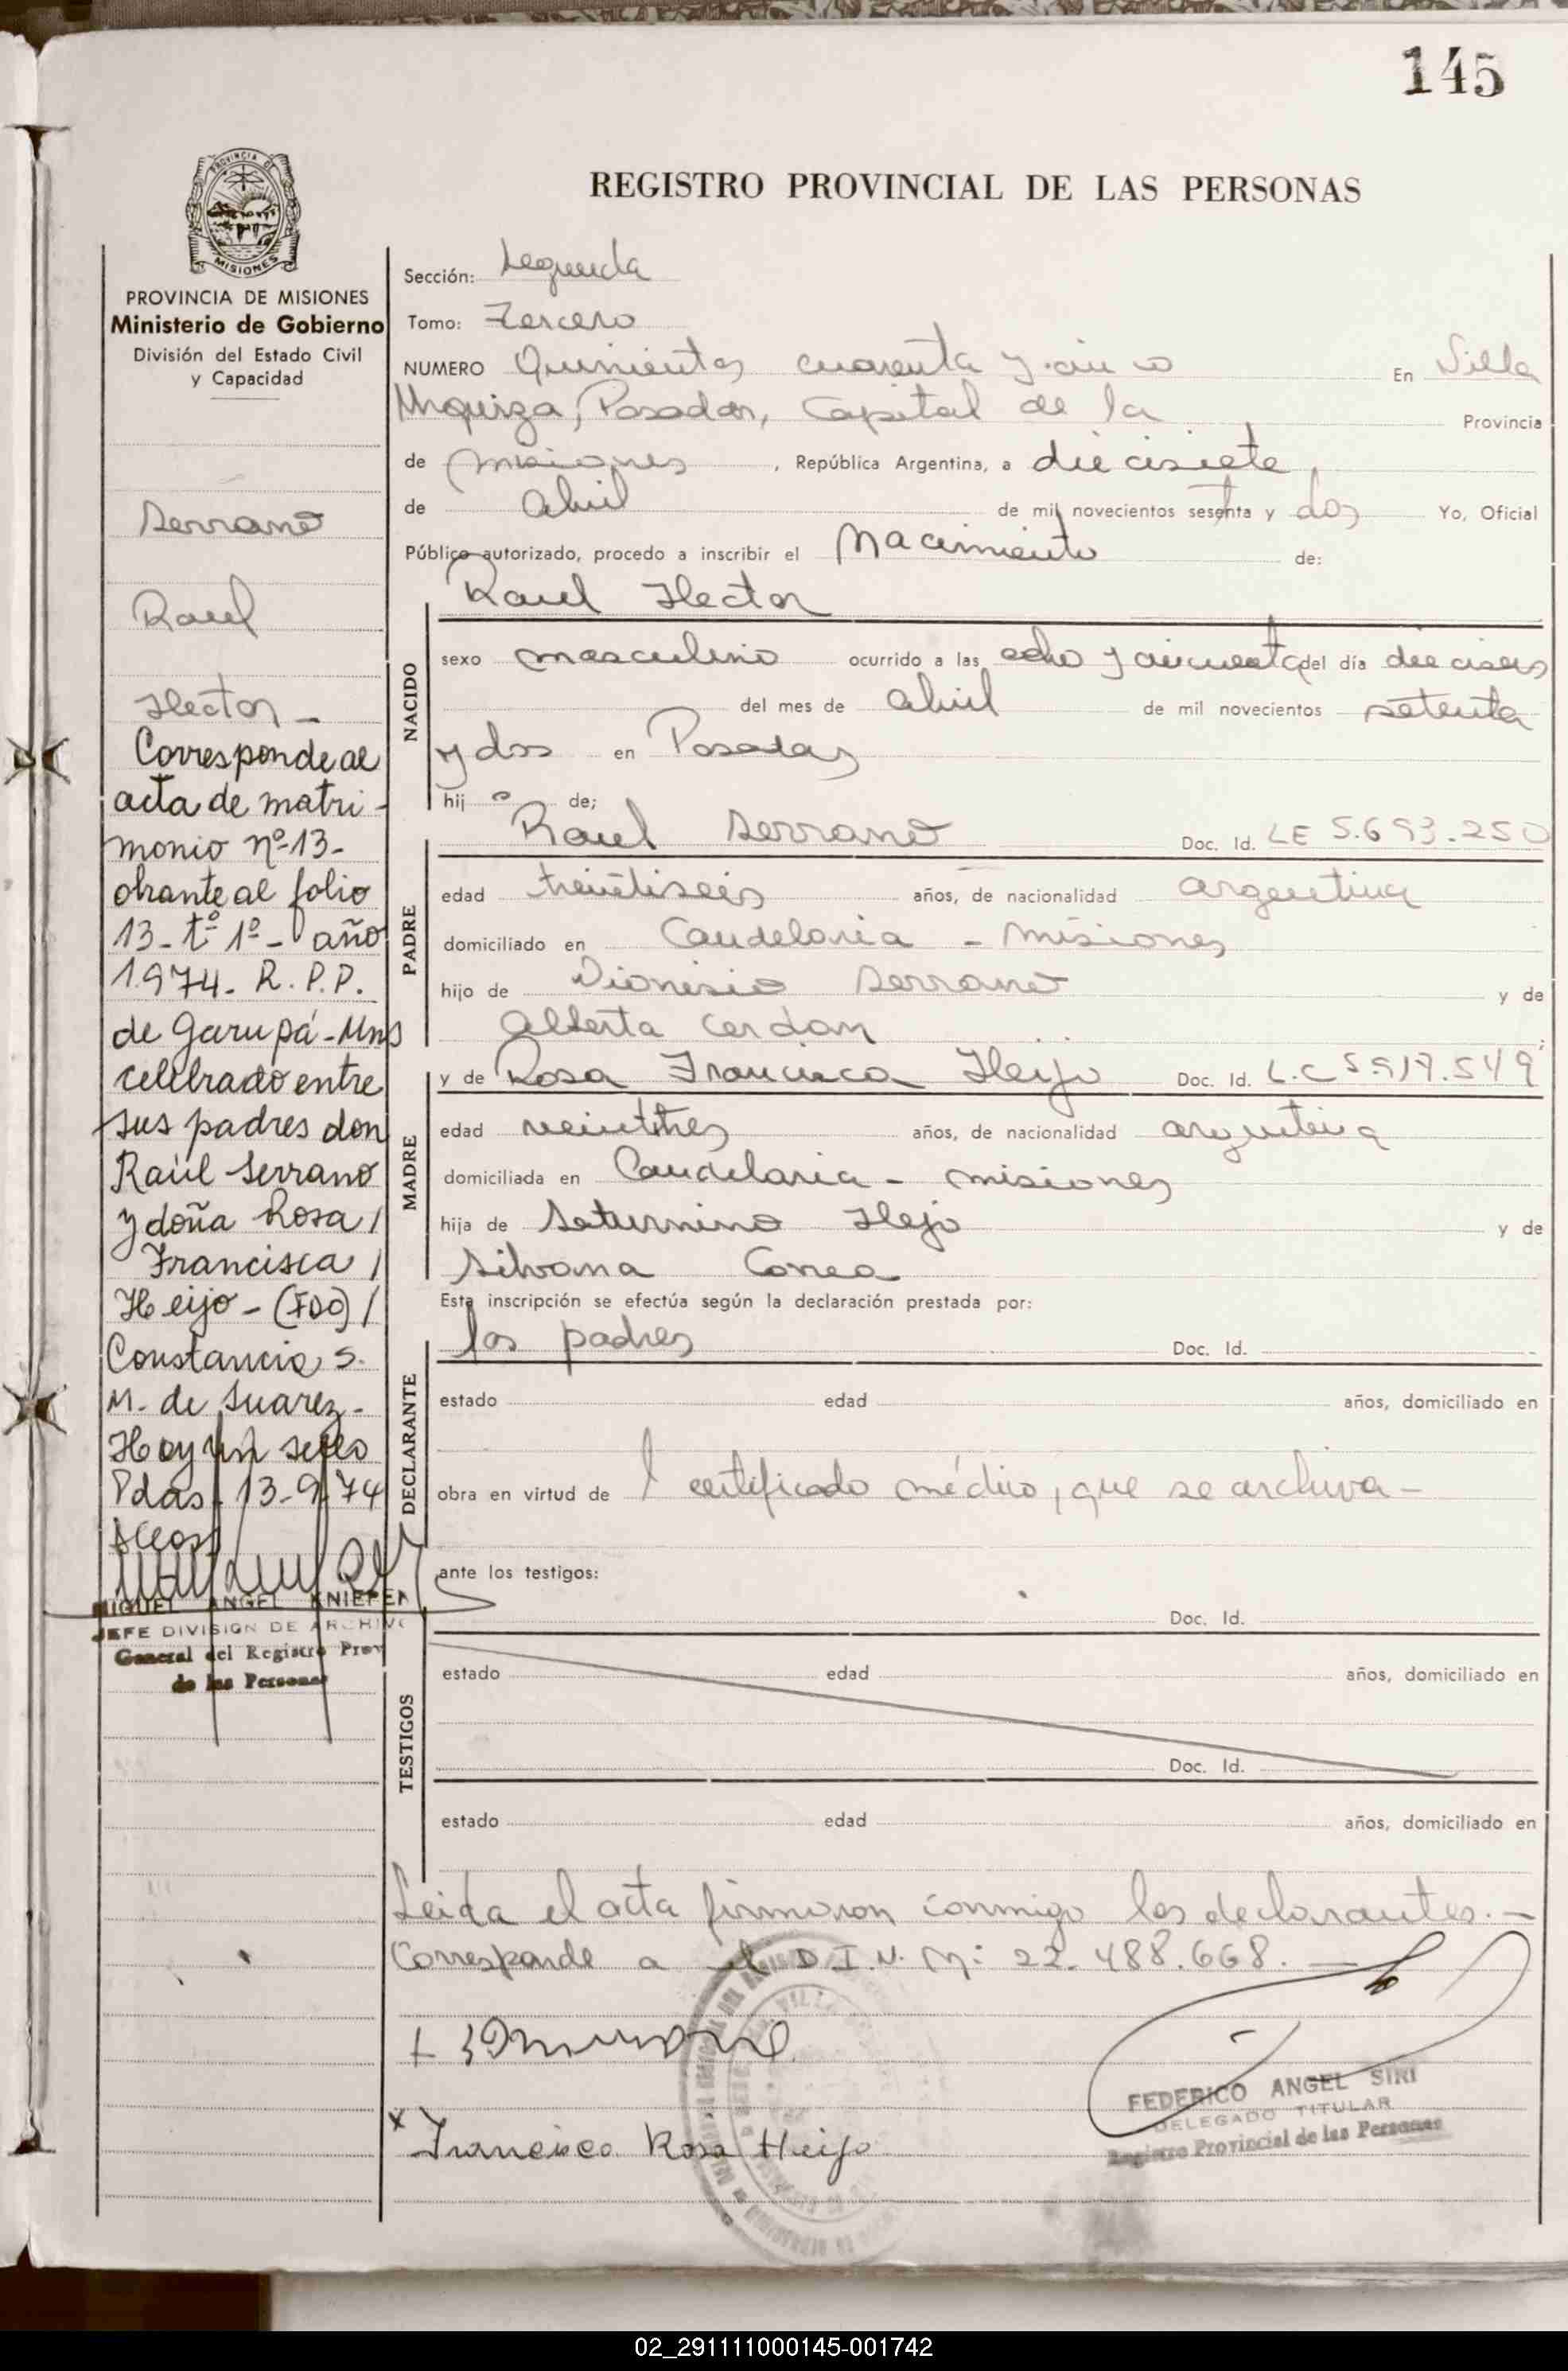 145
REGISTRO PROVINCIAL DE LAS PERSONAS
PROVINCIA DE MISIONES
Ministerio de Gobierno
División del Estado Civil
y Capacidad
Serrano
Raul
Hector -
Corresponde al
acta de matri-
monio nº 13-
obrante al folio
13 - tº 1º - año
1.974. R. P. P.
de Garupá - Mns
celebrado entre
sus padres don
Raúl Serrano
y doña Rosa /
Francisca /
Heijo - (FDO) /
Constancia S.
M. de Suarez -
Hay un sello
Pdas. 13-9-74
MIGUEL ANGEL KNIEPER
JEFE DIVISION DE ARCHIVO
General del Registro Prov
de las Personas
Sección: Segunda
Tomo: Tercero
NUMERO Quinientos cuarenta y cinco En Villa
Urquiza, Posadas, Capital de la Provincia
de Misiones, República Argentina, a diecisiete
de abril de mil novecientos setenta y dos Yo, Oficial
Público autorizado, procedo a inscribir el Nacimiento de:
Raul Hector
NACIDO
sexo masculino ocurrido a las ocho y cincuenta del día dieciseis
del mes de abril de mil novecientos setenta
y dos en Posadas
hijo de;
PADRE
Raul Serrano Doc. Id. LE 5.693.250
edad treintiseis años, de nacionalidad argentina
domiciliado en Candelaria - Misiones
hijo de Dionisio Serrano y de
Alberta Cerdan
MADRE
y de Rosa Francisca Heijo Doc. Id. L.C 5.917.549
edad veintitres años, de nacionalidad argentina
domiciliada en Candelaria - Misiones
hija de Saturnino Hejo y de
Silvana Correa
Esta inscripción se efectúa según la declaración prestada por:
DECLARANTE
los padres Doc. Id.
estado edad años, domiciliado en
obra en virtud de 1 certificado médico, que se archiva -
ante los testigos:
TESTIGOS
Doc. Id.
estado edad años, domiciliado en
Doc. Id.
estado edad años, domiciliado en
Leida el acta firmaron conmigo los declarantes. -
Corresponde a el D.I.N. M: 22.488.668. -
x Francisca Rosa Heijo
FEDERICO ANGEL SIRI
DELEGADO TITULAR
Registro Provincial de las Personas
02_291111000145-001742